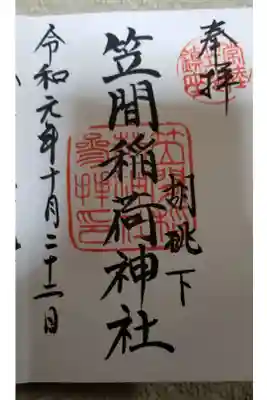 奉拝
胡桃下
笠間稲荷神社
令和元年十月二十二日